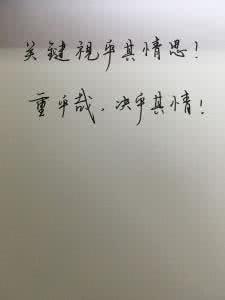 关鍵視乎其情思！
重乎哉，决乎其情！